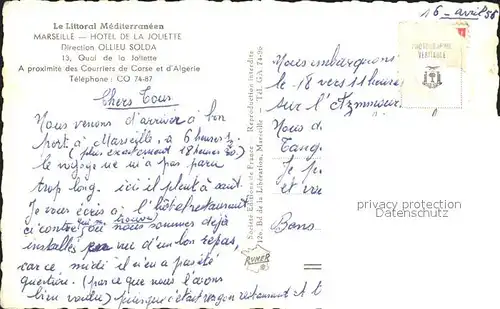 16 - avril 58
Le Littoral Méditerranéen
MARSEILLE — HOTEL DE LA JOLIETTE
Direction OLLIEU SOLDA
13, Quai de la Joliette
A proximité des Courriers de Corse et d'Algérie
Téléphone : CO 74-87
PHOTOGRAPHIE
VERITABLE
Chers Tous
Nous venons d'arriver à bon
port à Marseille, à 6 heures ½
(plus exactement 18 heures 30)
le voyage ne m'a pas paru
trop long. ici il pleut à saut.
Je vous écris à l'hôtel restaurant
ci contre, où nous sommes déjà
installés en vu d'un bon repas,
car ce midi il n'en a pas été
question. (par ce que nous l'avons
bien voulu) puisque c'était resgon restaurant A t
Société Editions de France - Reproduction interdite
126, Bd de la Libération, Marseille — Tél. GA 74-96
RYNER
Nous embarquons
le 18 vers 11 heures
sur l'
Nous d
Tang
Je p
et v
Bons
privacy protection
Datenschutz